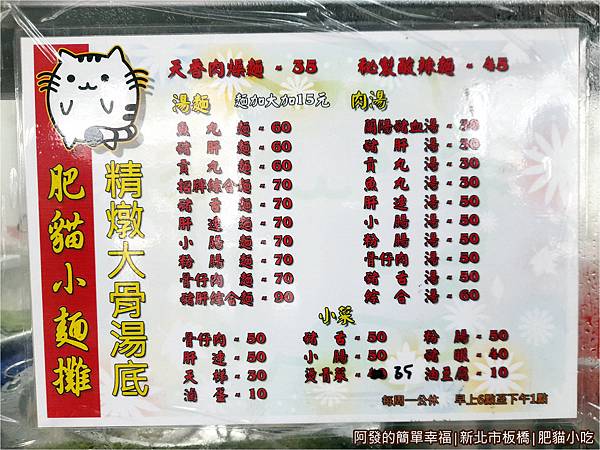 肥貓小麵攤
精燉大骨湯底
天香肉燥麵 - 35
秘製酸辣麵 - 45
湯麵 麵加大加15元
魚丸麵 - 60
豬肝麵 - 60
貢丸麵 - 60
招牌綜合麵 - 70
豬舌麵 - 70
肝連麵 - 70
小腸麵 - 70
粉腸麵 - 70
骨仔肉麵 - 70
豬肝綜合麵 - 90
肉湯
蘭陽豬血湯 - 30
豬肝湯 - 30
貢丸湯 - 30
魚丸湯 - 30
肝連湯 - 50
小腸湯 - 50
粉腸湯 - 50
骨仔肉湯 - 50
豬舌湯 - 50
綜合湯 - 60
小菜
骨仔肉 - 50
肝連 - 50
天梯 - 30
滷蛋 - 10
豬舌 - 50
小腸 - 50
燙青菜 - 35
粉腸 - 50
豬眼 - 40
油豆腐 - 10
每周一公休 早上6點至下午1點
阿發的簡單幸福|新北市板橋|肥貓小吃